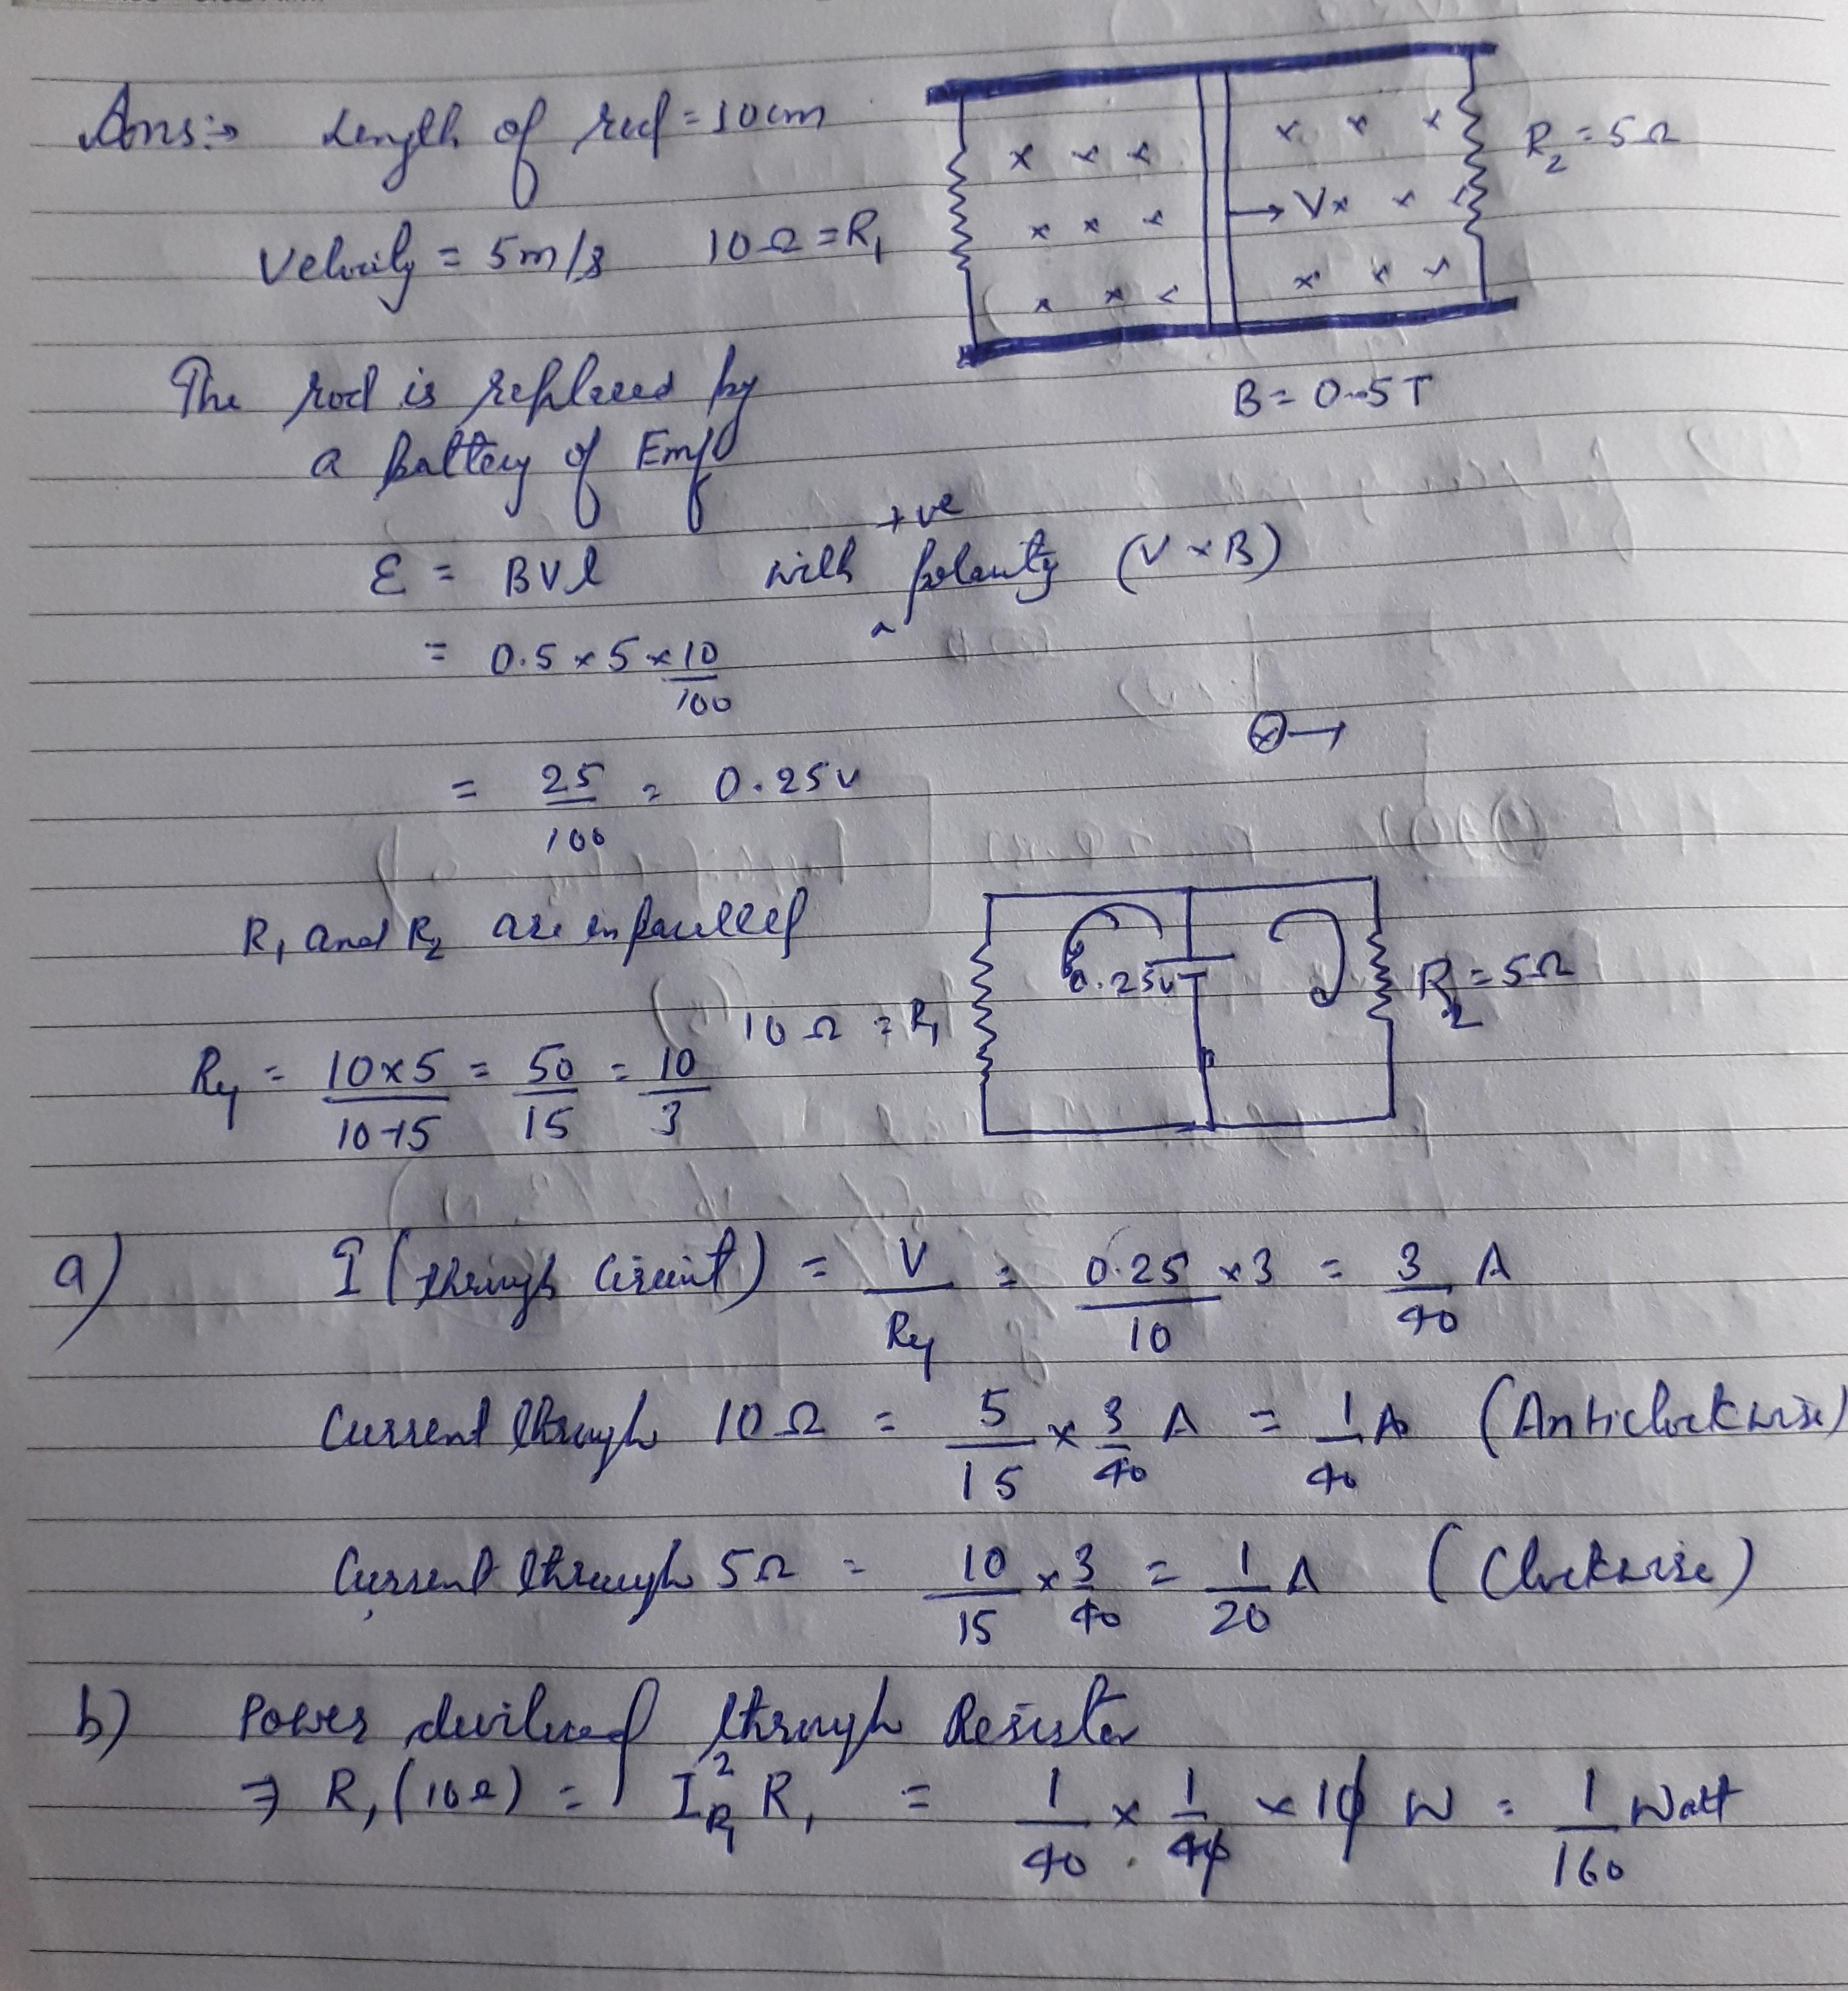 Ans:→ Length of rod = 10cm
R₂ = 5Ω
Velocity = 5m/s 10Ω = R₁
→ V
The rod is replaced by
B = 0.5T
a Battery of Emf
+ve
ε = BVl with polarity (V × B)
= 0.5 × 5 × 10/100
⊗→
= 25/100 = 0.25v
R₁ and R₂ are in parallel
0.25v
R₂ = 5Ω
10Ω = R₁
Rey = 10×5/10+5 = 50/15 = 10/3
a) I (through Circuit) = V/Rey = 0.25/10 × 3 = 3/40 A
Current through 10Ω = 5/15 × 3/40 A = 1/40 A (Anticlockwise)
Current through 5Ω = 10/15 × 3/40 = 1/20 A (Clockwise)
b) Power through Resistor
⇒ R₁(10Ω) = I²R₁ R₁ = 1/40 × 1/40 × 10 W = 1/160 Watt